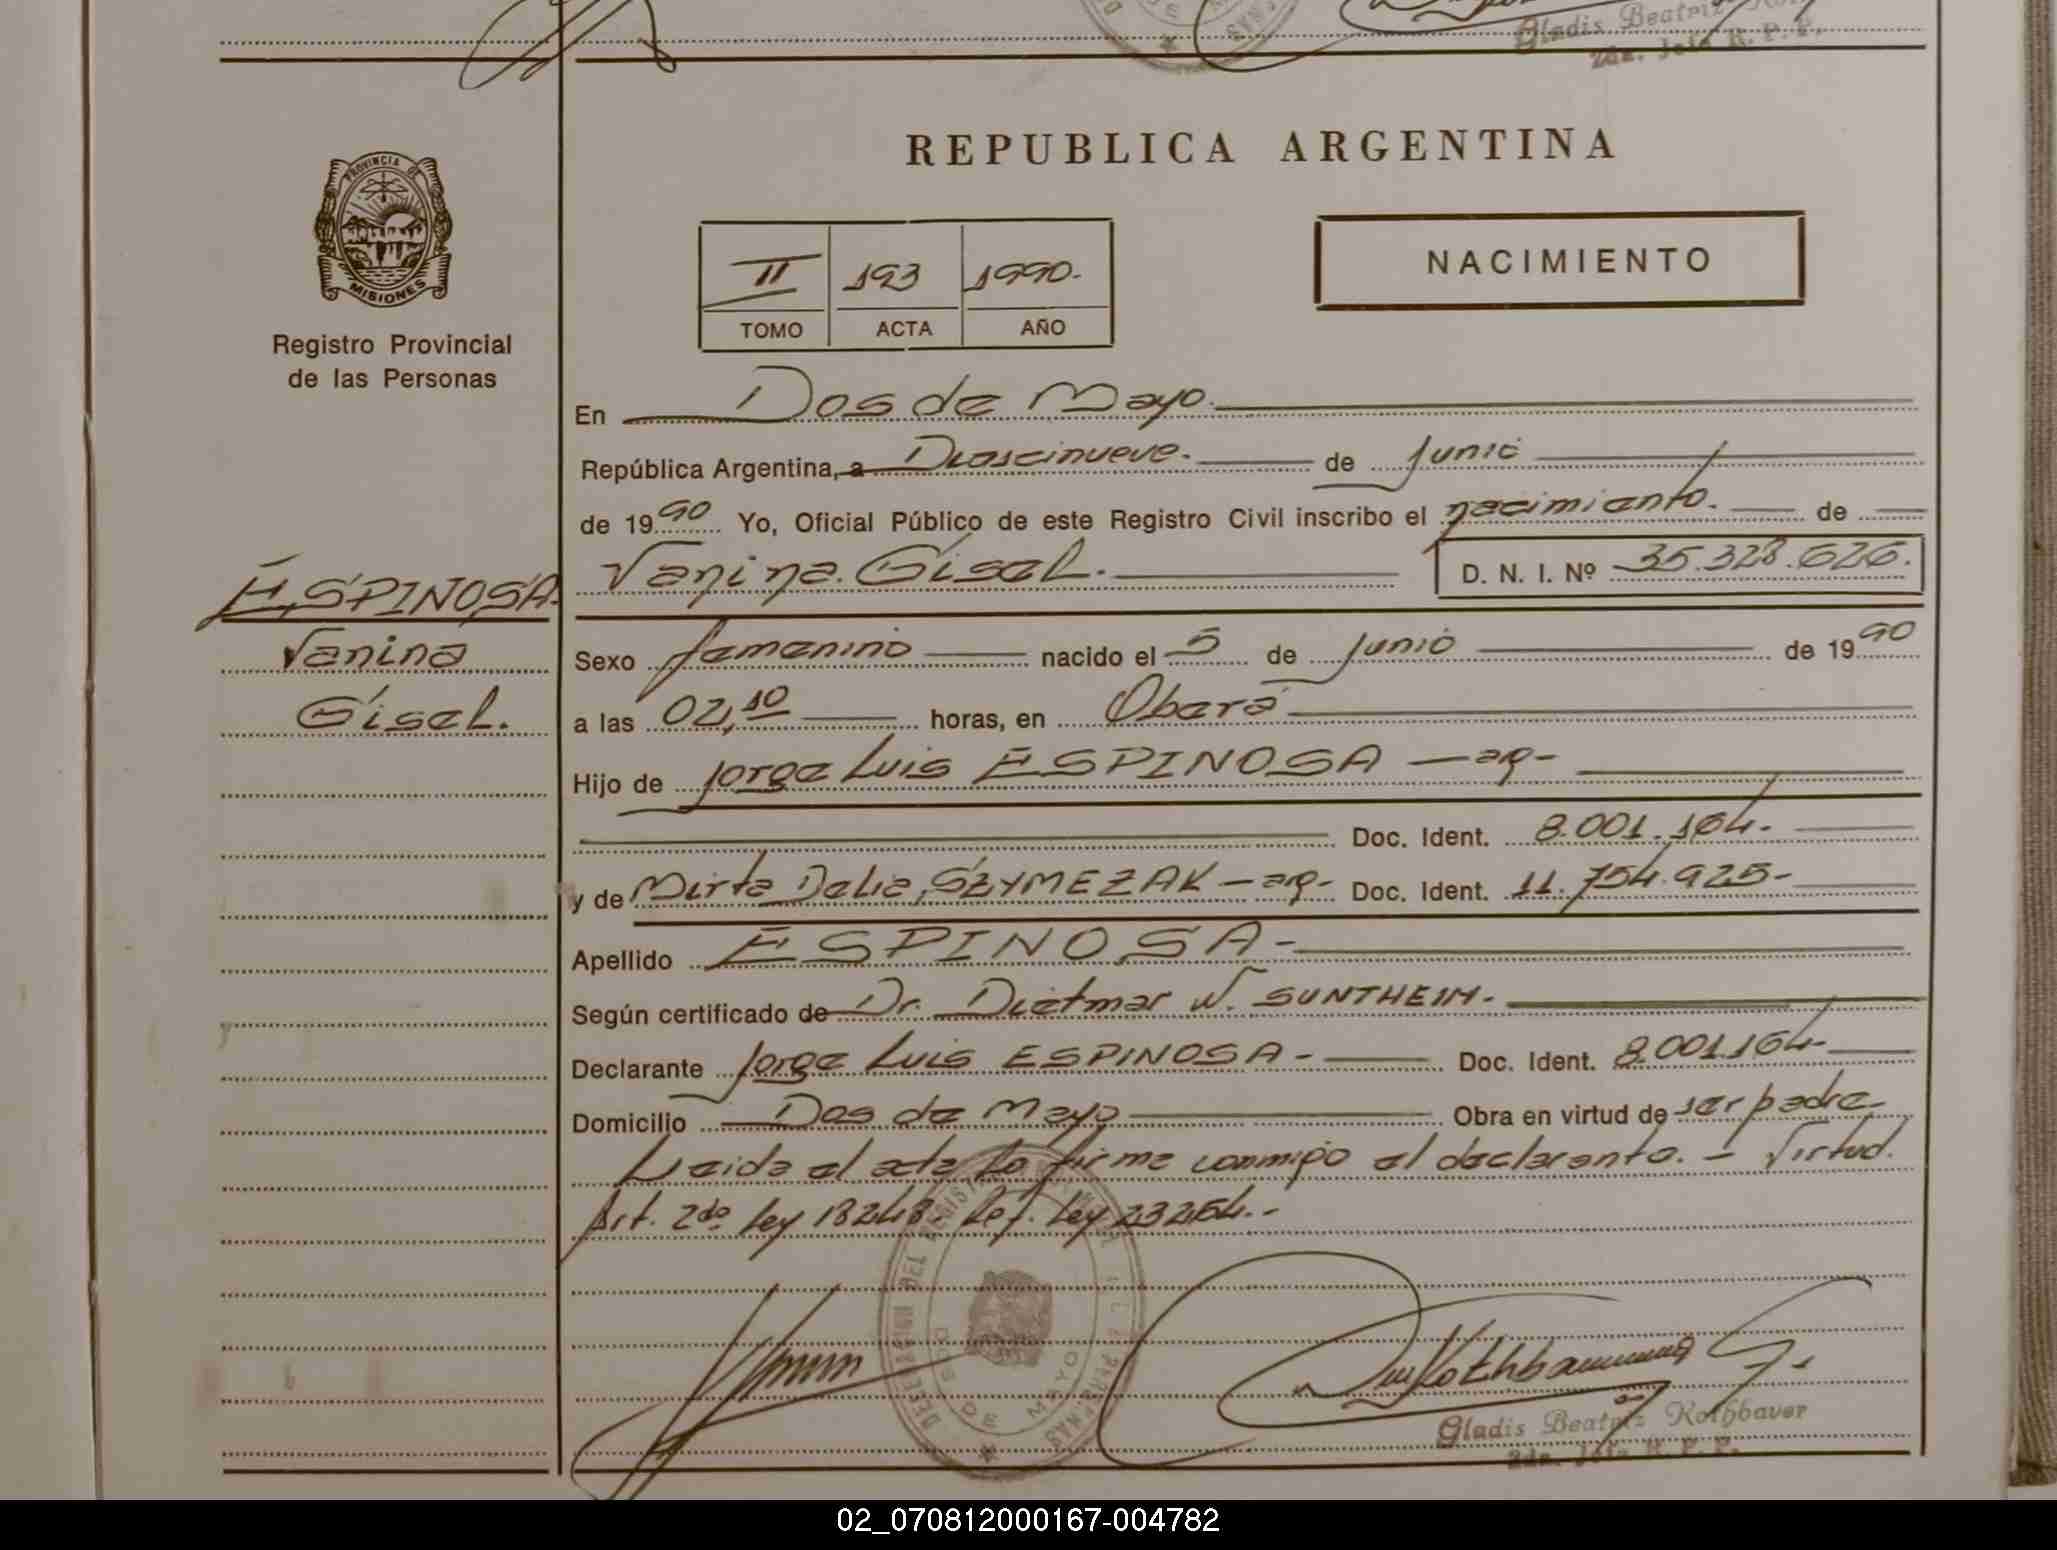 Gladis Beatriz
2da. Jefa R. P. P.
PROVINCIA DE
MISIONES
Registro Provincial
de las Personas
REPUBLICA ARGENTINA
II 193 1990.
TOMO ACTA AÑO
NACIMIENTO
En Dos de Mayo.
República Argentina, a Dioscinueve. de Junio
de 1990 Yo, Oficial Público de este Registro Civil inscribo el nacimiento. de
Vanina Gisel. D. N. I. Nº 35.328.626.
ESPINOSA
Vanina
Gisel.
Sexo femenino nacido el 5 de Junio de 1990
a las 02,10 horas, en Oberá
Hijo de Jorge Luis ESPINOSA - ar -
Doc. Ident. 8.001.164.
y de Mirta Delia SZYMEZAK - ar - Doc. Ident. 11.754.925
Apellido ESPINOSA
Según certificado de Dr. Dietmar W. SUNTHEIM.
Declarante Jorge Luis ESPINOSA - Doc. Ident. 8.001.164
Domicilio Dos de Mayo Obra en virtud de ser padre
Leida el acta la firma conmigo el declarante. - Virtud.
Art. 2do Ley 18248. Ref. Ley 23264. -
DOS DE MAYO
Gladis Beatriz Rothbauer
2da. Jefa R. P. P.
02_070812000167-004782